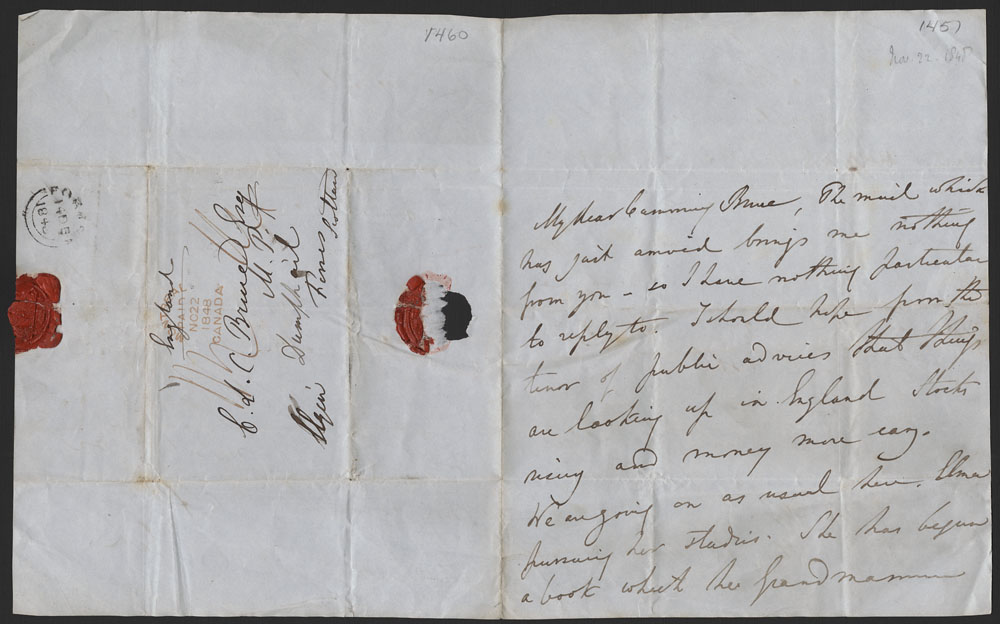 1460
England
C. L. C. Bruce Esq
M.P.
Dunphail
Forres
Scotland
Elgin
NO 22
1848
CANADA
1457
Nov. 22. 1848
My dear Cumming Bruce, The mail which
has just arrived brings me nothing
from you – so I have nothing particular
to reply to. I should hope from the
tenor of public advices that things
are looking up in England Stocks
rising and money more easy.
We are going on as usual here. Elma
pursuing her studies. She has begun
a book which her Grandmamma